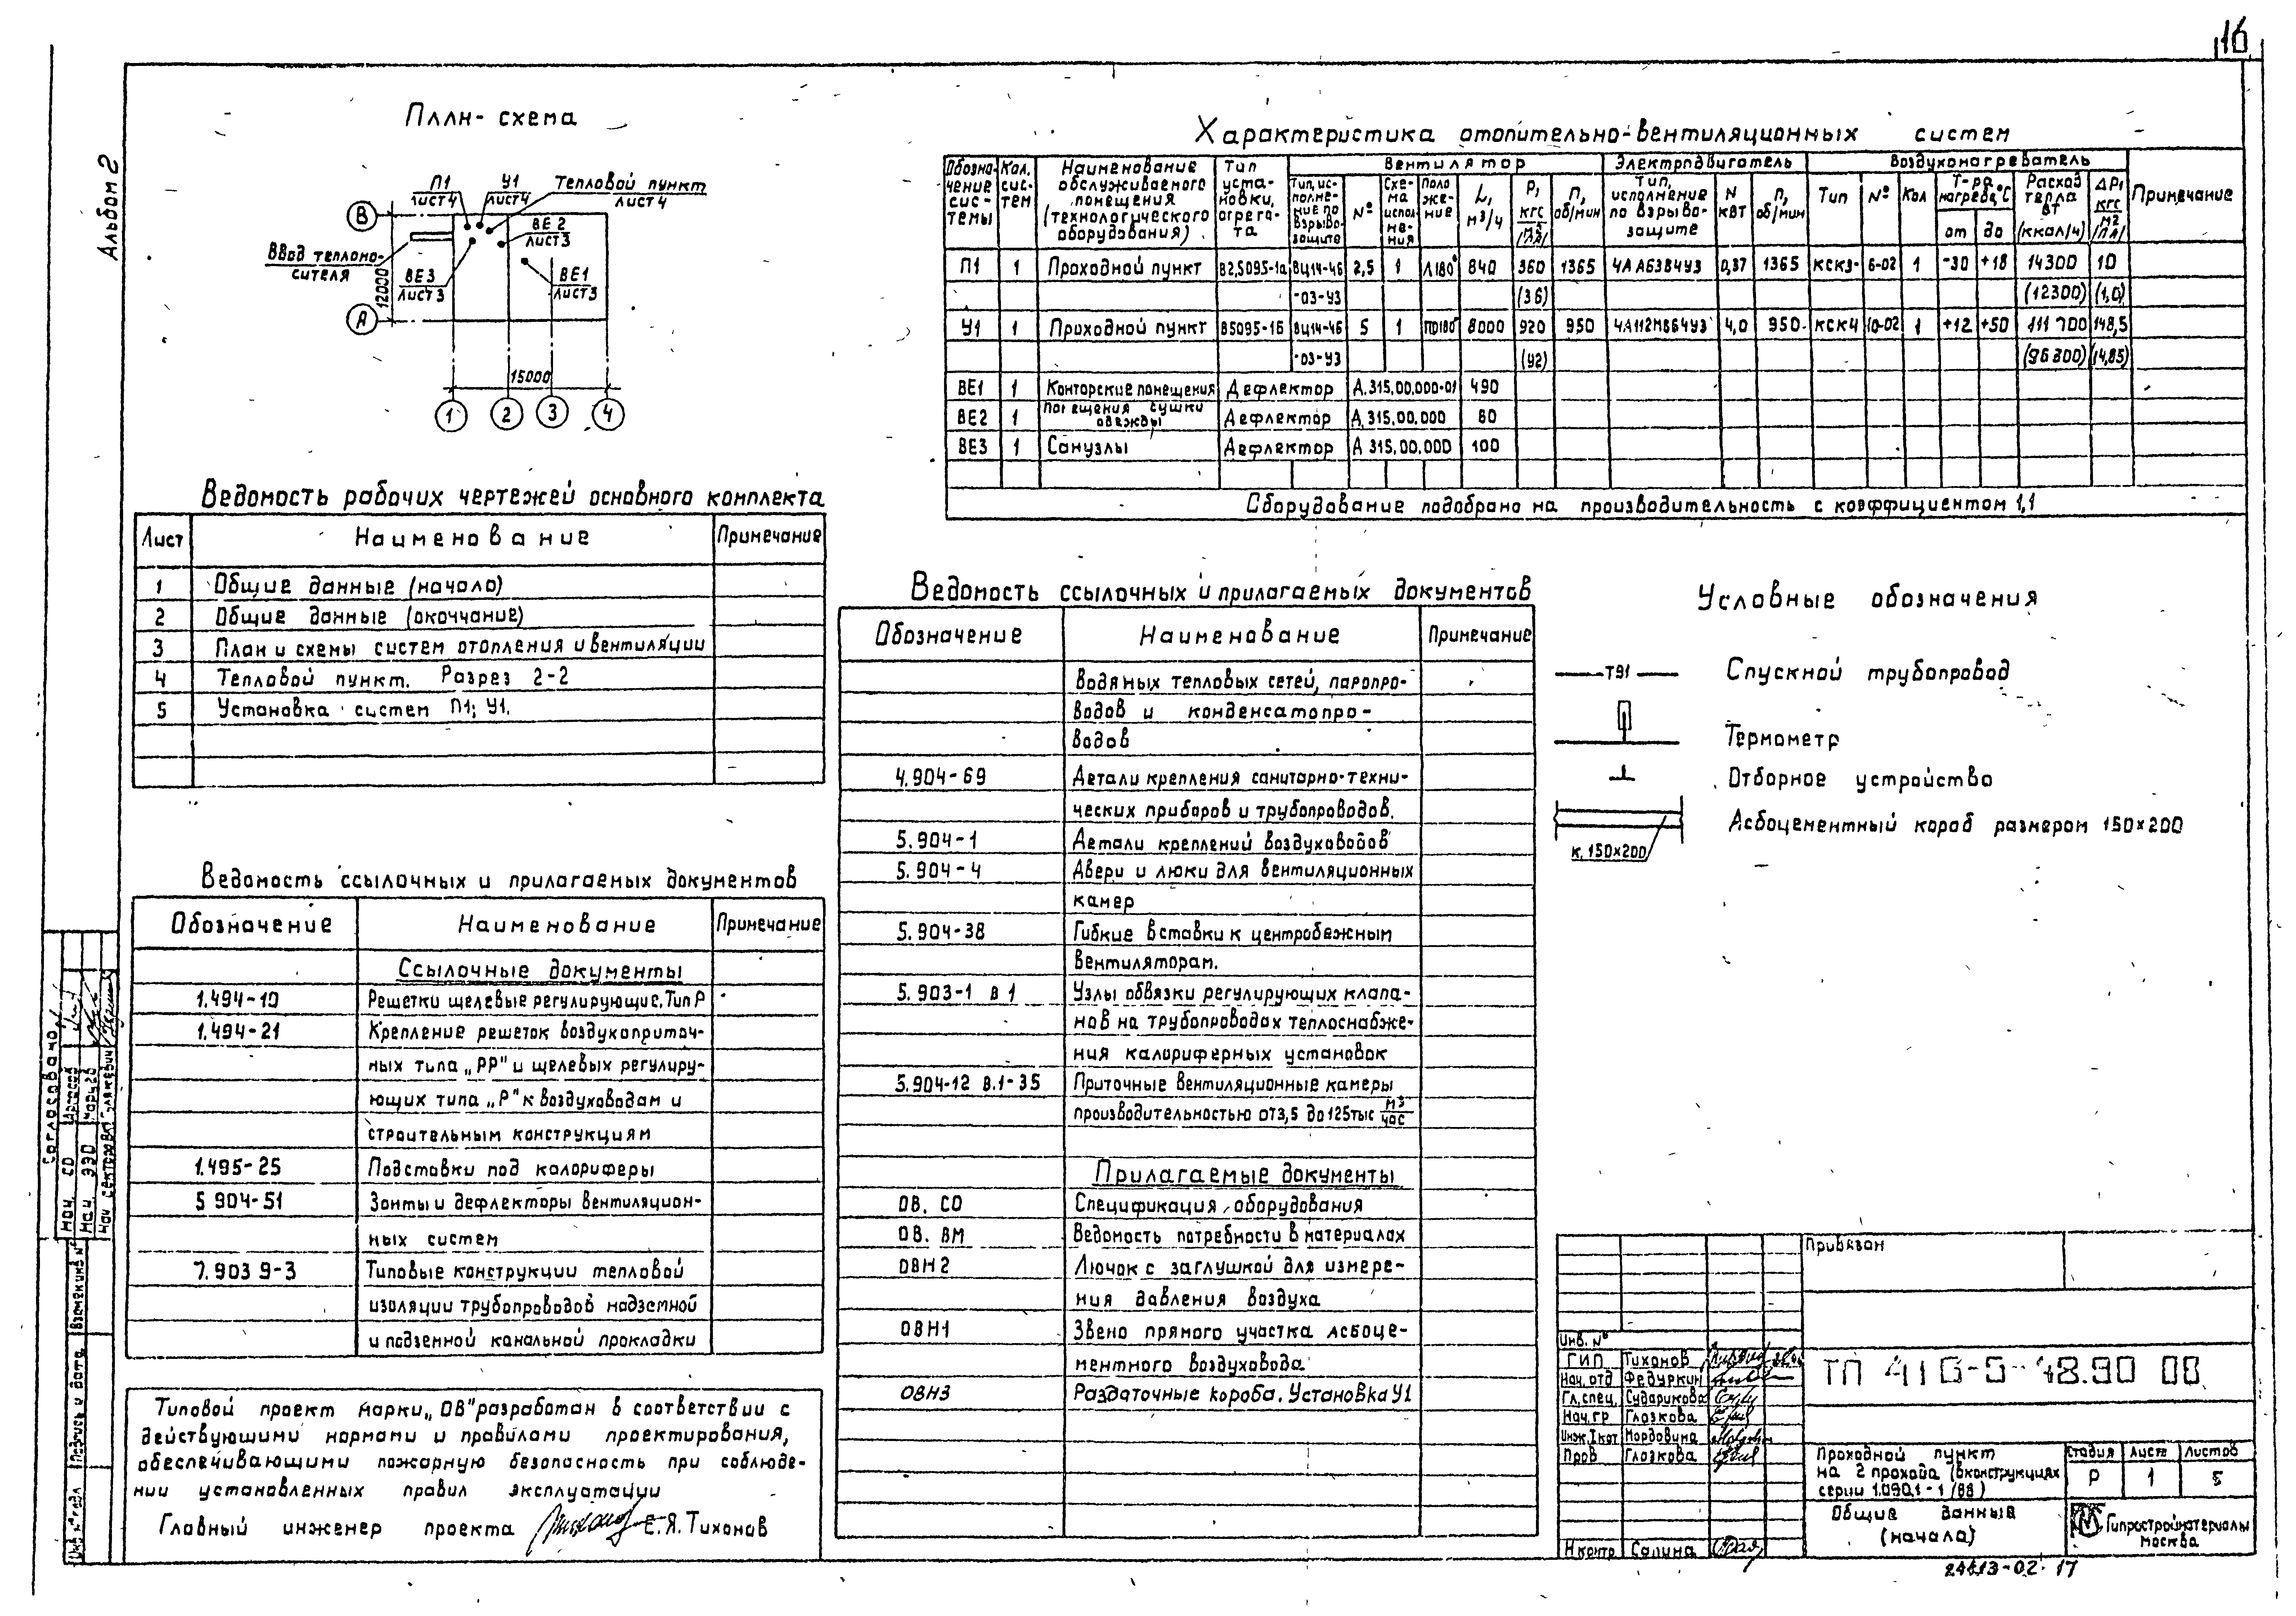 16
Альбом 2
План-схема
П1
лист 4
У1
лист 4
Тепловой пункт
лист 4
ВЕ 2
лист 3
Ввод теплоно-
сителя
ВЕ3
лист 3
ВЕ1
лист 3
В
А
12000
15000
1 2 3 4
Характеристика отопительно-вентиляционных систем
Обозна-
чение
сис-
темы
Кол.
сис-
тем
Наименование
обслуживаемого
помещения
(технологического
оборудования)
Тип
уста-
новки,
агрега-
та
Вентилятор
Тип, ис-
полне-
ние по
взрыво-
защите
№
Схе-
ма
испол
не-
ния
Поло
же-
ние
L,
м³/ч
P,
кгс
м²
(Па)
п,
об/мин
Электродвигатель
Тип,
исполнение
по взрыво-
защите
N
кВт
п,
об/мин
Воздухонагреватель
Тип
№
Кол
Т-ра
нагрева, °С
от до
Расход
тепла
Вт
(ккал/ч)
ΔP,
кгс
м²
(Па)
Примечание
П1 1 Проходной пункт В2,5095-1а ВЦ14-46 2,5 1 Л180° 840 360 1365 4АА63В4У3 0,37 1365 КСК3- 6-02 1 -30 +18 14300 10
-03-У3 (36) (12300) (1,0)
У1 1 Проходной пункт В5095-1б ВЦ14-46 5 1 ПО180° 8000 920 950 4А112МВ6У3 4,0 950 КСК4 10-02 1 +12 +50 111 700 148,5
-03-У3 (92) (96 200) (14,85)
ВЕ1 1 Конторские помещения Дефлектор Д.315.00.000-01 490
ВЕ2 1 Помещения сушки
одежды Дефлектор Д.315.00.000 80
ВЕ3 1 Санузлы Дефлектор Д 315.00.000 100
Оборудование подобрано на производительность с коэффициентом 1,1
Ведомость рабочих чертежей основного комплекта
Лист Наименование Примечание
1 Общие данные (начало)
2 Общие данные (окончание)
3 План и схемы систем отопления и вентиляции
4 Тепловой пункт. Разрез 2-2
5 Установка систем П1; У1.
Ведомость ссылочных и прилагаемых документов
Обозначение Наименование Примечание
Ссылочные документы
1.494-10 Решетки щелевые регулирующие. Тип Р
1.494-21 Крепление решеток воздухоприточ-
ных типа „РР" и щелевых регулиру-
ющих типа „Р" к воздуховодам и
строительным конструкциям
1.495-25 Подставки под калориферы
5 904-51 Зонты и дефлекторы вентиляцион-
ных систем
7.903 9-3 Типовые конструкции тепловой
изоляции трубопроводов надземной
и подземной канальной прокладки
Ведомость ссылочных и прилагаемых документов
Обозначение Наименование Примечание
водяных тепловых сетей, паропро-
водов и конденсатопро-
водов
4.904-69 Детали крепления санитарно-техни-
ческих приборов и трубопроводов.
5.904-1 Детали креплений воздуховодов
5.904-4 Двери и люки для вентиляционных
камер
5.904-38 Гибкие вставки к центробежным
вентиляторам.
5.903-1 в 1 Узлы обвязки регулирующих клапа-
нов на трубопроводах теплоснабже-
ния калориферных установок
5.904-12 в.1-35 Приточные вентиляционные камеры
производительностью от 3,5 до 125 тыс м³/час
Прилагаемые документы
ОВ. СО Спецификация оборудования
ОВ. ВМ Ведомость потребности в материалах
ОВН2 Лючок с заглушкой для измере-
ния давления воздуха
ОВН1 Звено прямого участка асбоце-
ментного воздуховода
ОВН3 Раздаточные короба. Установка У1
Условные обозначения
Т91 Спускной трубопровод
Термометр
Отборное устройство
Асбоцементный короб размером 150×200
к. 150×200
Типовой проект марки „ОВ" разработан в соответствии с
действующими нормами и правилами проектирования,
обеспечивающими пожарную безопасность при соблюде-
нии установленных правил эксплуатации
Главный инженер проекта Е.Я. Тихонов
Согласовано
Нач. СО
Нач. ЭЭО
Нач секторов
Взамен инв №
Подпись и дата
Инв № подл
Привязан
Инв. №
ГИП Тихонов
Нач. отд Федуркин
Гл. спец. Сударикова
Нач. гр Глозкова
Инж. I кат Мордовина
Пров Глозкова
Н контр Салина
ТП 416-5-48.90 ОВ
Проходной пункт
на 2 прохода (в конструкциях
серии 1.090.1-1 /88)
Стадия Лист Листов
Р 1 5
Общие данные
(начало)
Гипростройматериалы
Москва
24113-02 17